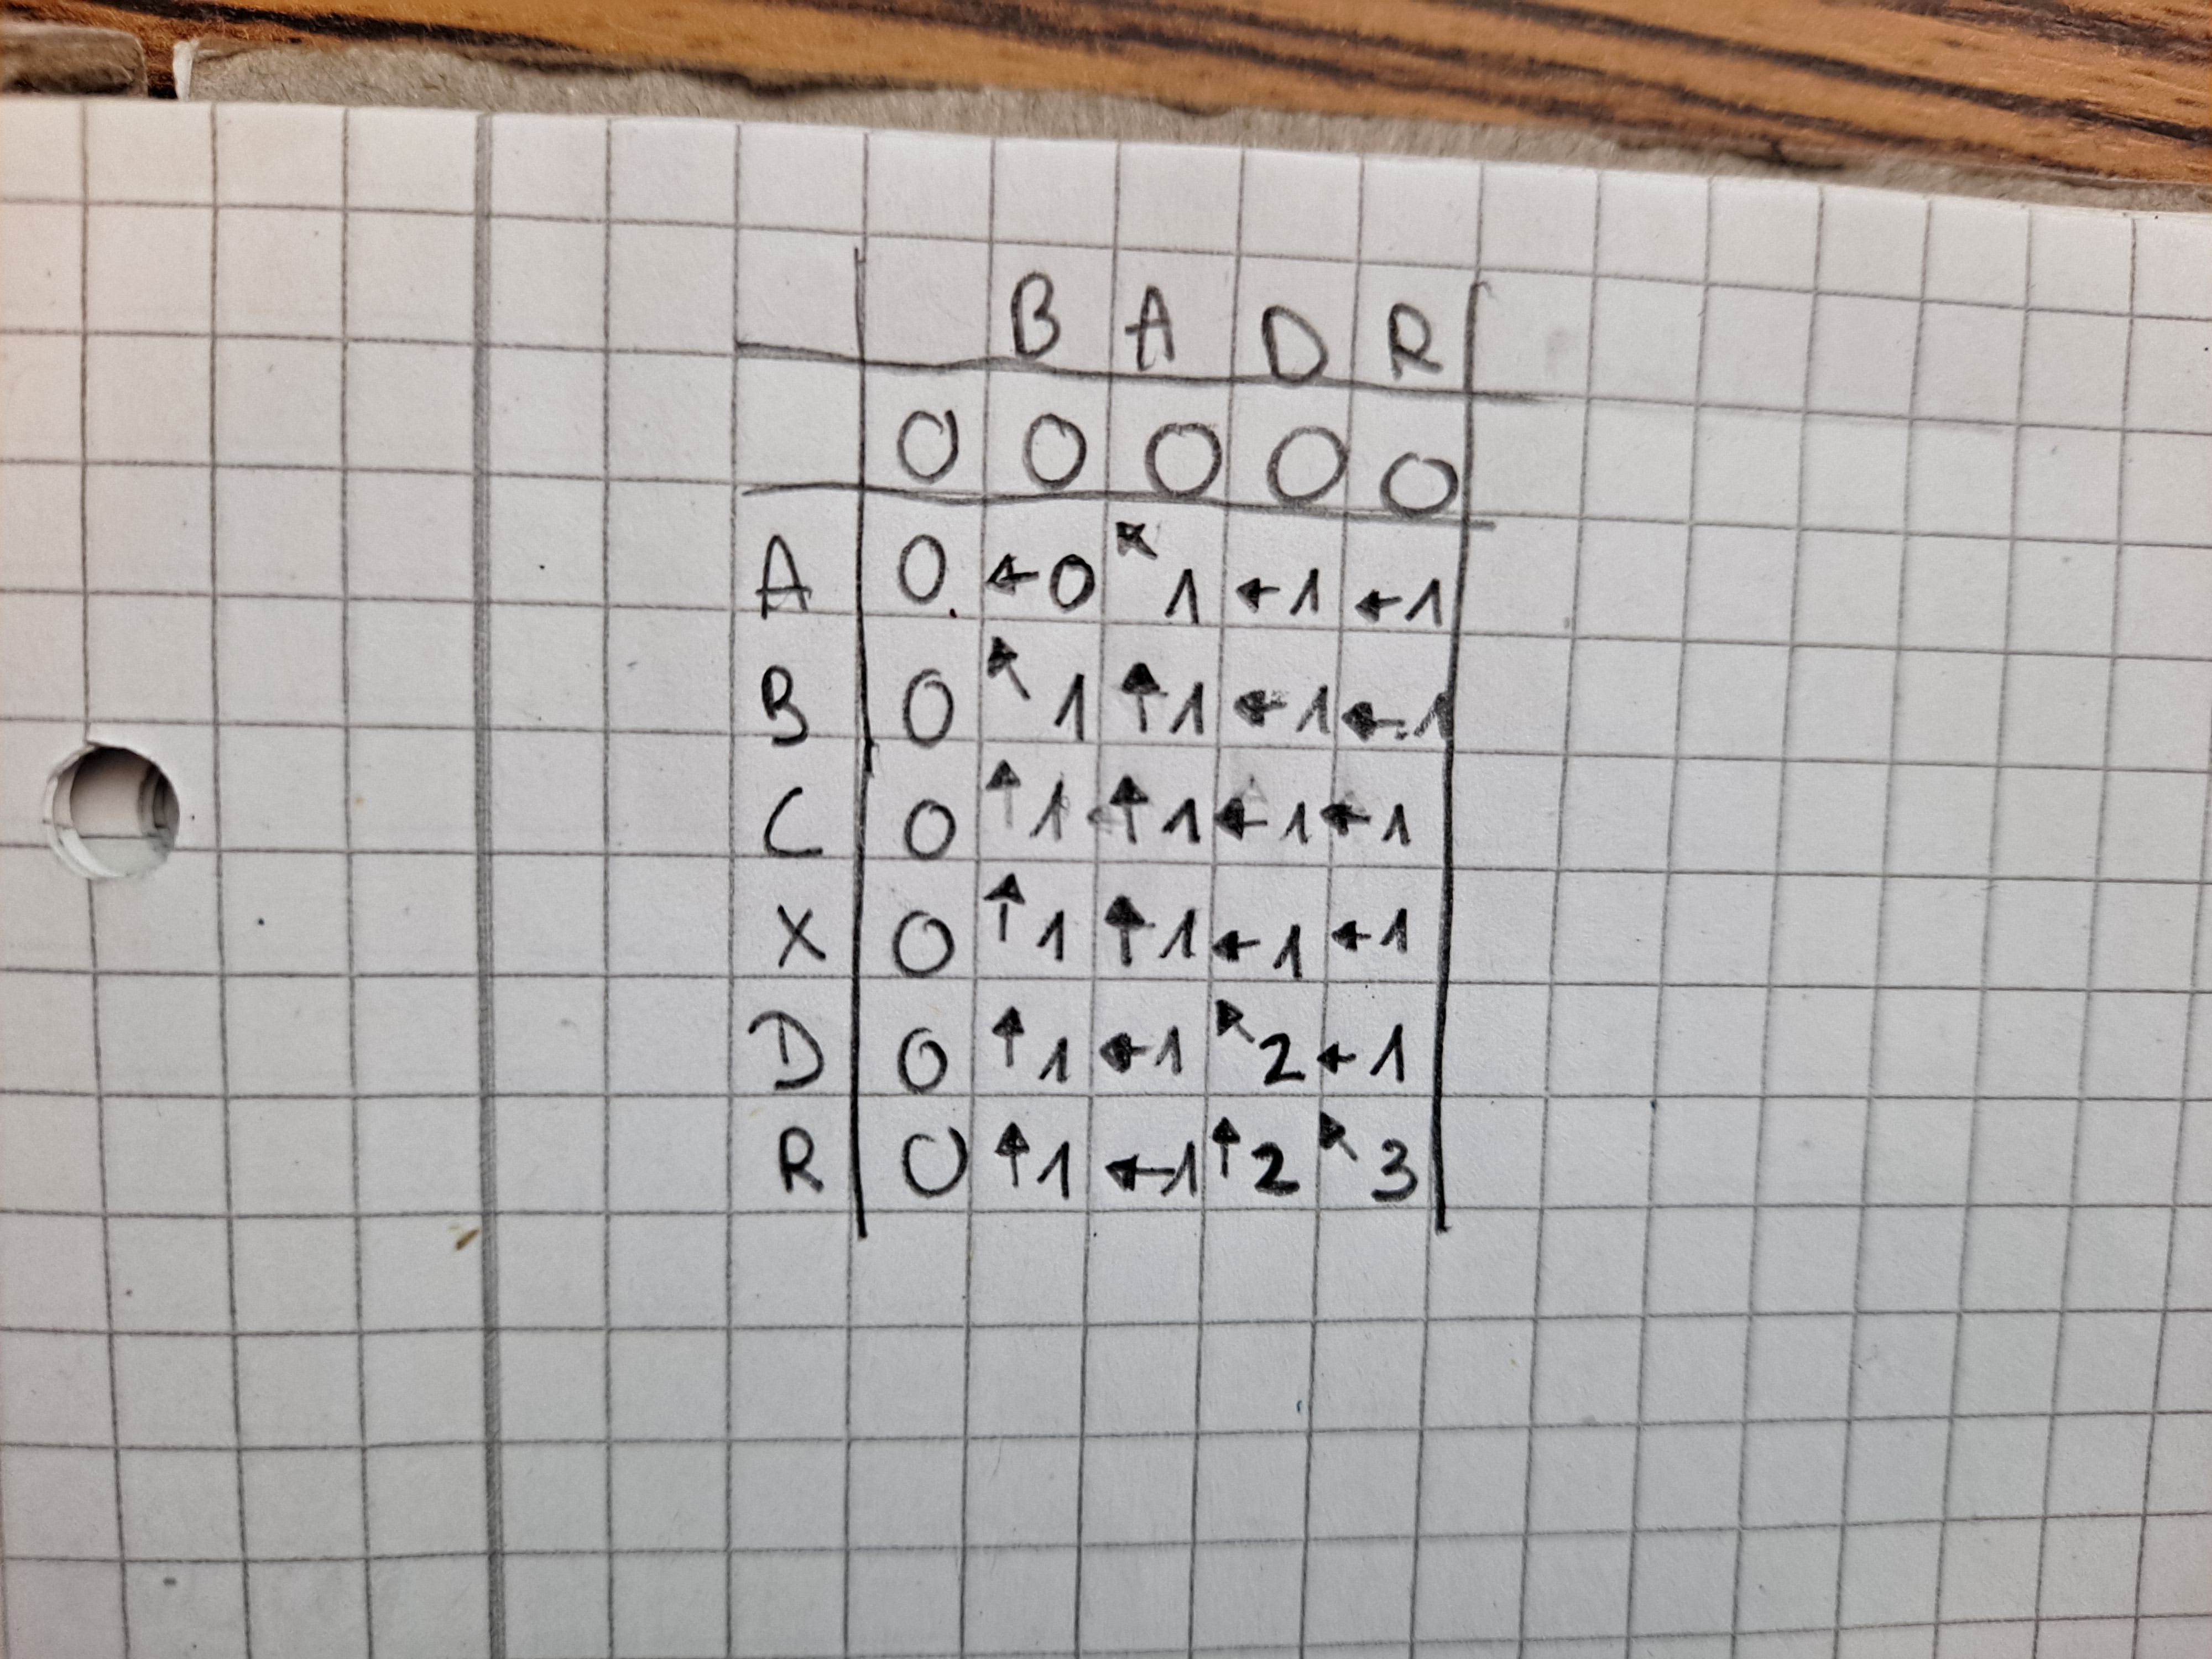 B A D R
0 0 0 0 0
A 0 ←0 ↖1 ←1 ←1
B 0 ↖1 ↑1 ←1 ←1
C 0 ↑1 ↑1 ←1 ←1
X 0 ↑1 ↑1 ←1 ←1
D 0 ↑1 ←1 ↖2 ←1
R 0 ↑1 ←1 ↑2 ↖3